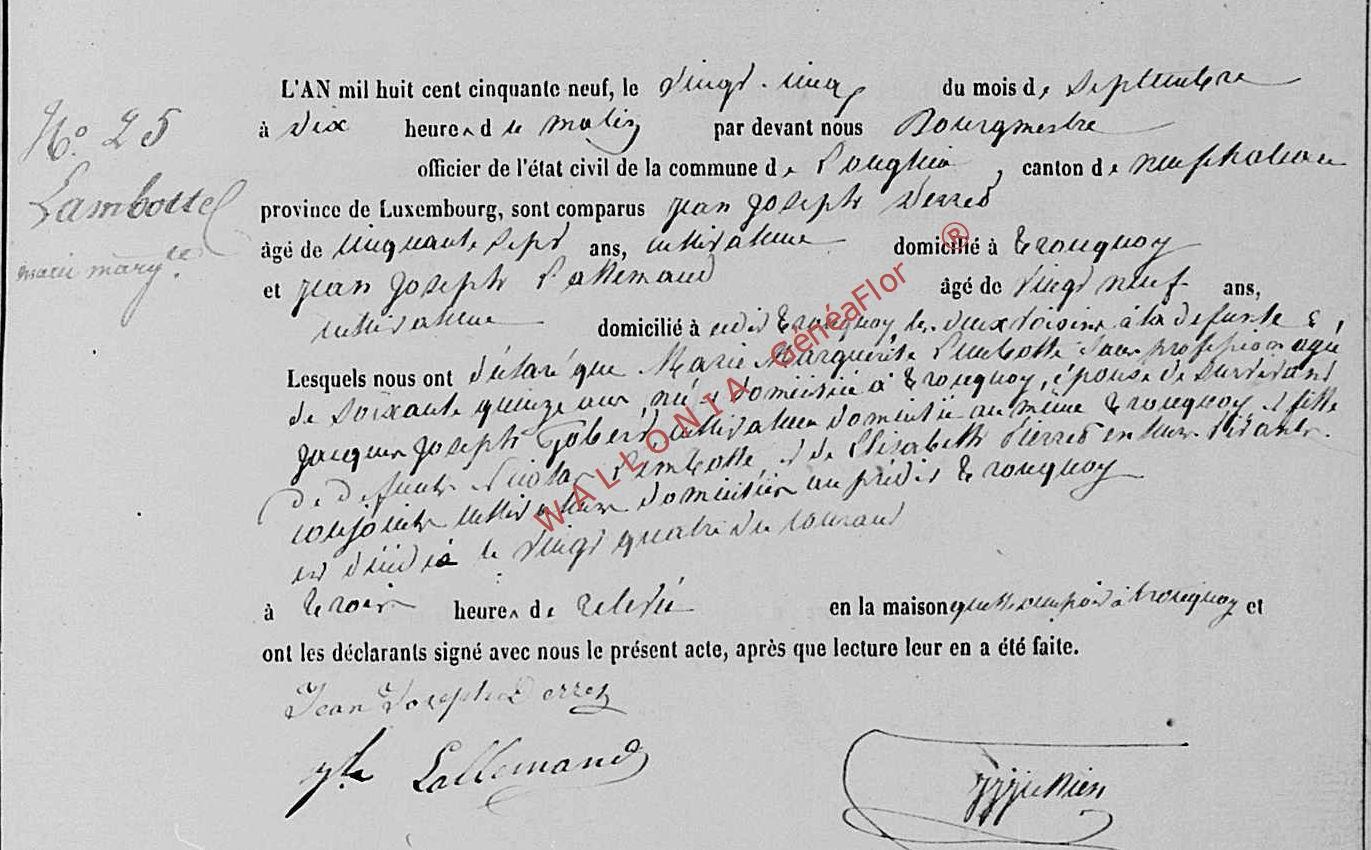 N.° 25
Lambotte
marie marg.te
L'AN mil huit cent cinquante neuf, le vingt-cinq du mois de Septembre
à dix heures du matin par devant nous Bourgmestre
officier de l'état civil de la commune de Longlier, canton de neufchateau
province de Luxembourg, sont comparus jean joseph
âgé de cinquante sept ans, cultivateur domicilié à Tronquoy
et jean joseph Lallemand âgé de vingt neuf ans,
cultivateur domicilié à Tronquoy les deux voisins à la defunte
Lesquels nous ont déclaré que Marie Marguerite Lambotte sans profession agée
de soixante quinze ans, née & domiciliée à Tronquoy, épouse de survivant
jacques joseph Gobert, cultivateur domicilié au même Tronquoy, et fille
de defunts Nicolas Lambotte et de Elisabeth en leur vivant
conjoints cultivateurs domiciliés au prédit Tronquoy
est décédée le vingt quatre du courant
à trois heures de relevée en la maison qu'elle occupait à tronquoy et
ont les déclarants signé avec nous le présent acte, après que lecture leur en a été faite.
Jean Joseph
Lallemand
WALLONIA GénéaFlor ®